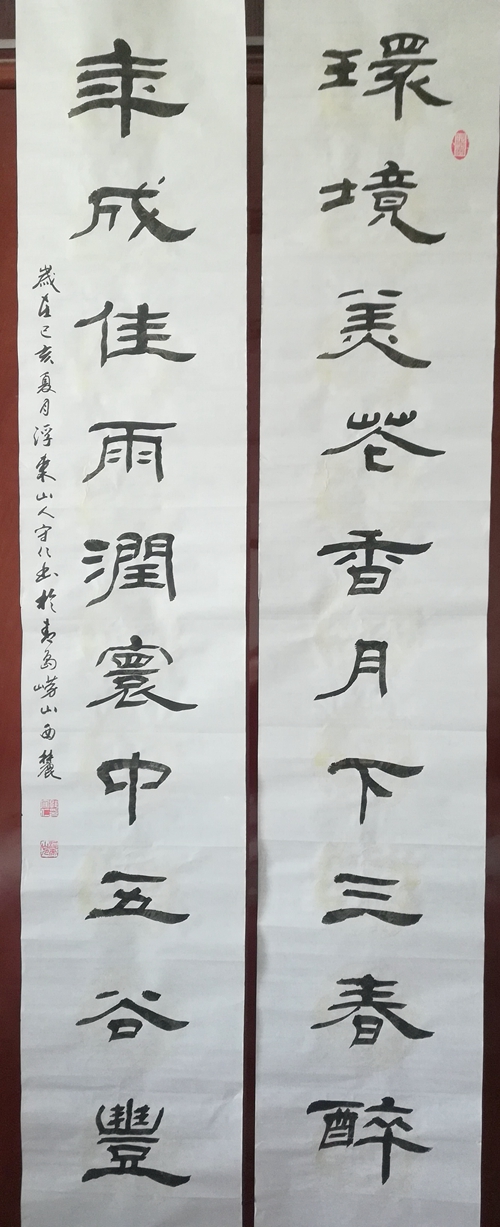 環境美花香月下三春醉
年成佳雨潤寰中五谷豐
歲在己亥夏月浮粟山人守仁书於青岛崂山西麓